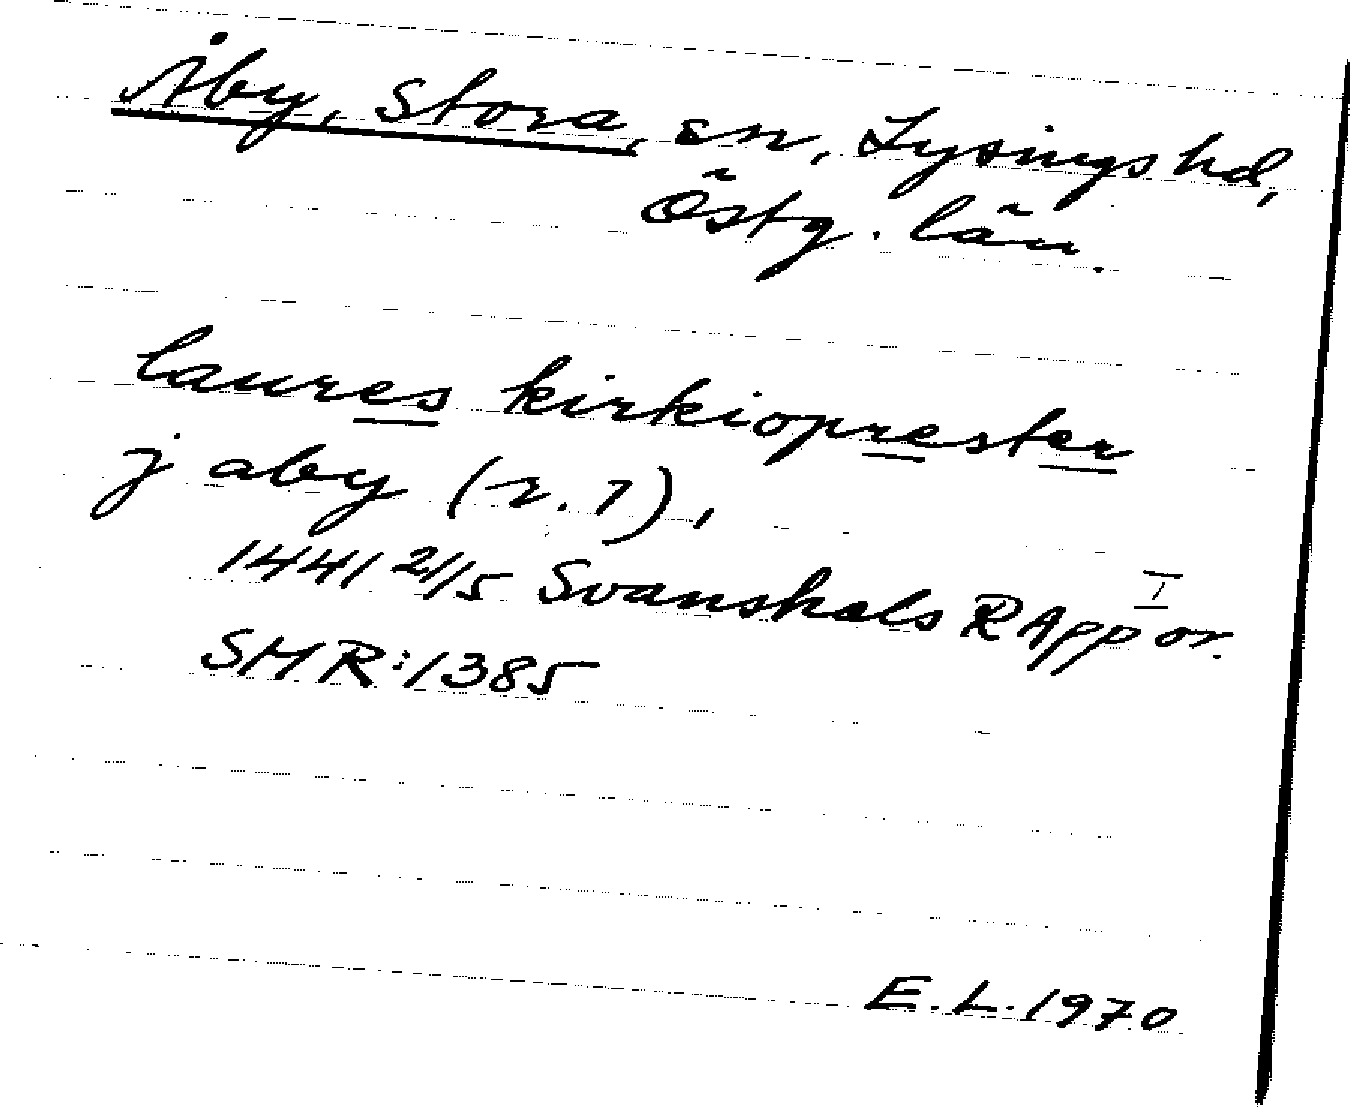 Åby, Stora, sn, Lysings hd,
Östg. län.
laures kirkioprester
j aby (r. 7),
1441 21/5 Svanshals RApp I or.
SMR: 1385
E.L. 1970